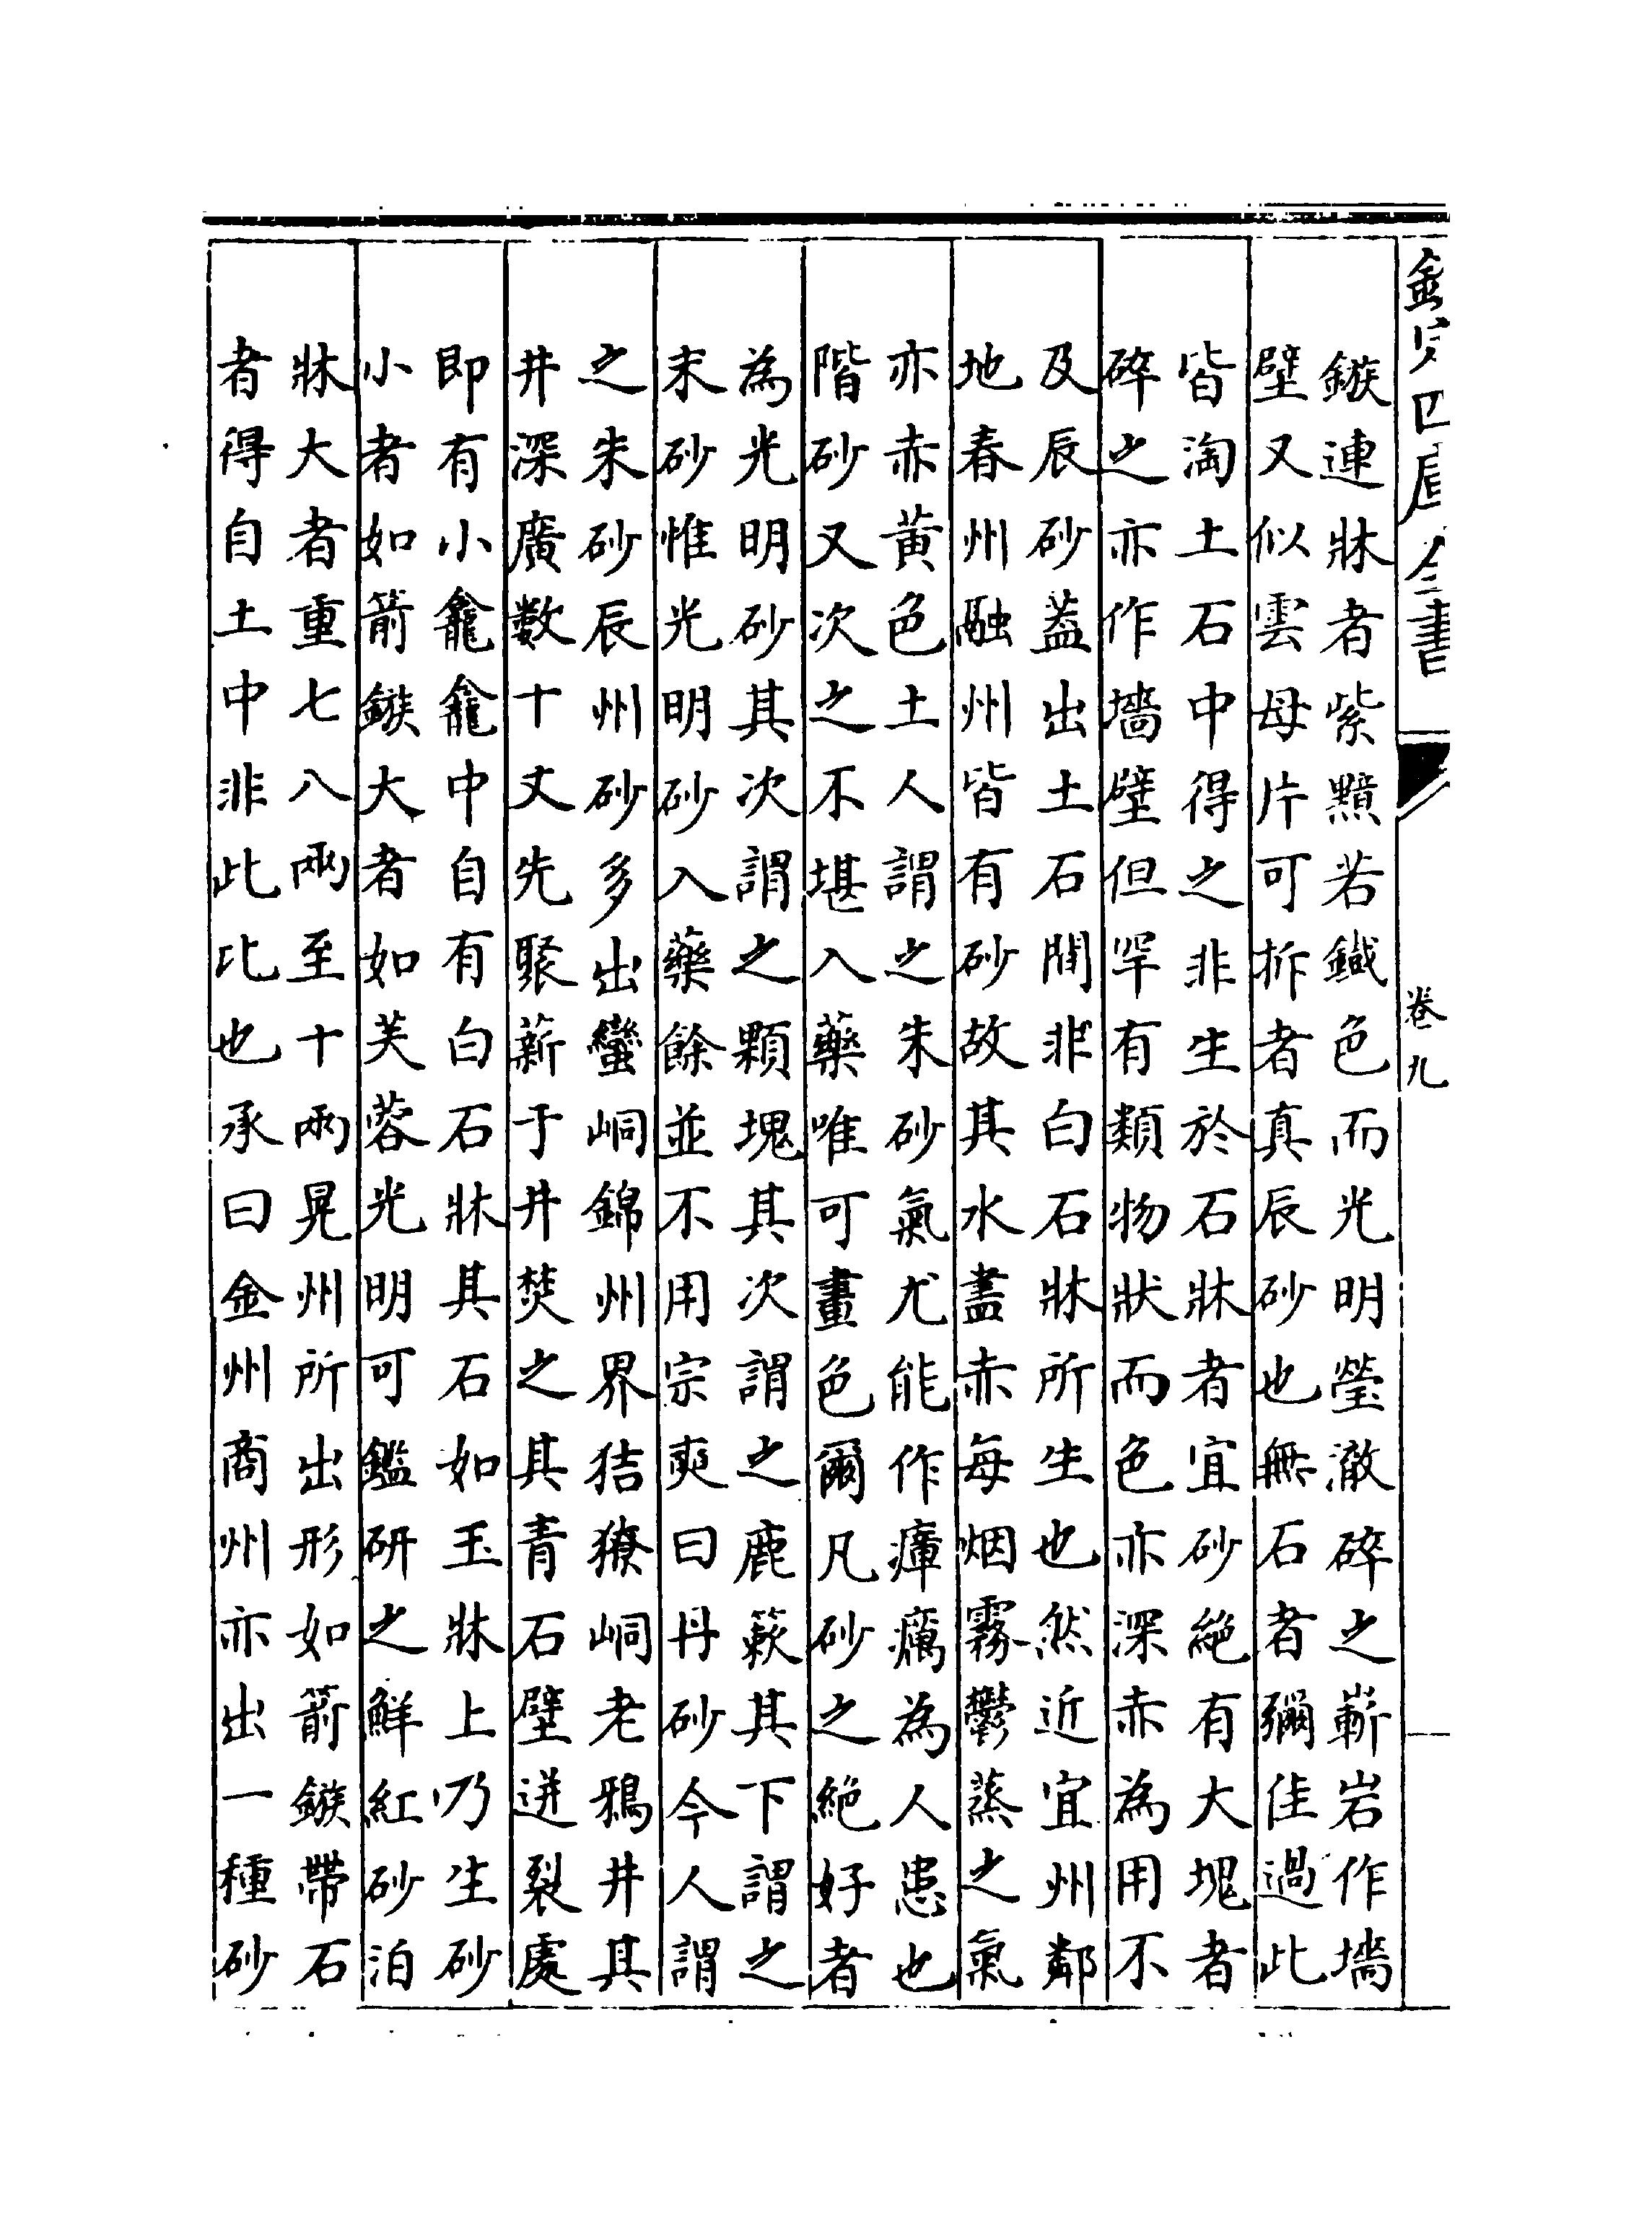 欽定四庫全書
卷九
鏃連牀者紫黯若鐵色而光明瑩澈碎之嶄岩作墻
壁又似雲母片可拆者真辰砂也無石者彌佳過此
皆淘土石中得之非生於石牀者宜砂絶有大塊者
碎之亦作墻壁但罕有類物狀而色亦深赤為用不
及辰砂葢出土石間非白石牀所生也然近宜州鄰
地春州融州皆有砂故其水盡赤每烟霧鬱蒸之氣
亦赤黄色土人謂之朱砂氣尤能作瘴癘為人患也
階砂又次之不堪入藥唯可畫色爾凡砂之絶好者
為光明砂其次謂之顆塊其次謂之鹿簌其下謂之
末砂惟光明砂入藥餘並不用宗奭曰丹砂今人謂
之朱砂辰州砂多出蠻峒錦州界狤獠峒老鴉井其
井深廣數十丈先聚薪于井焚之其青石壁迸裂處
即有小龕龕中自有白石牀其石如玉牀上乃生砂
小者如箭鏃大者如芙蓉光明可鑑研之鮮紅砂泊
牀大者重七八兩至十兩晃州所出形如箭鏃帶石
者得自土中非此比也承曰金州商州亦出一種砂